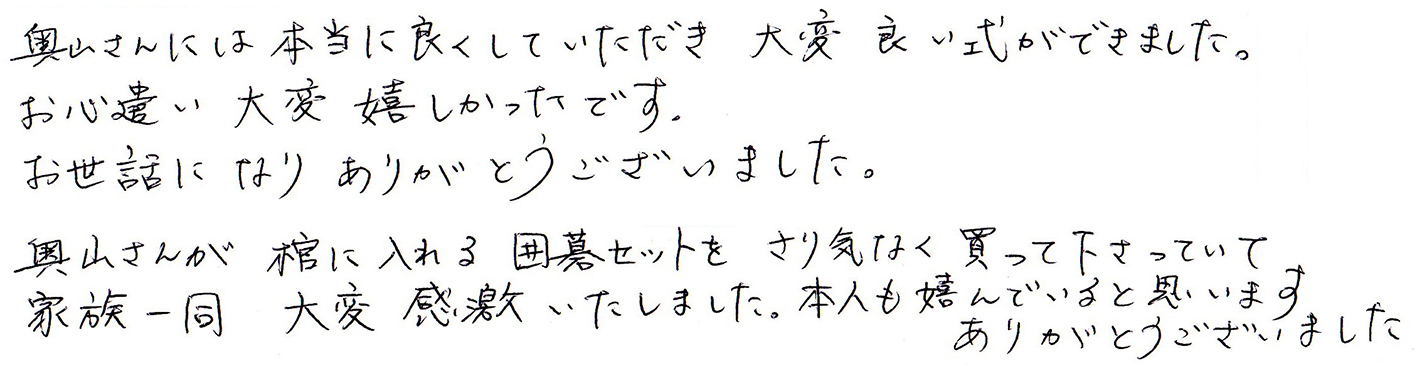 奥山さんには本当に良くしていただき 大変良い式ができました。
お心遣い 大変嬉しかったです。
お世話になり ありがとうございました。
奥山さんが棺に入れる囲碁セットを さり気なく買って下さっていて
家族一同 大変感激いたしました。本人も嬉んでいると思います
ありがとうございました